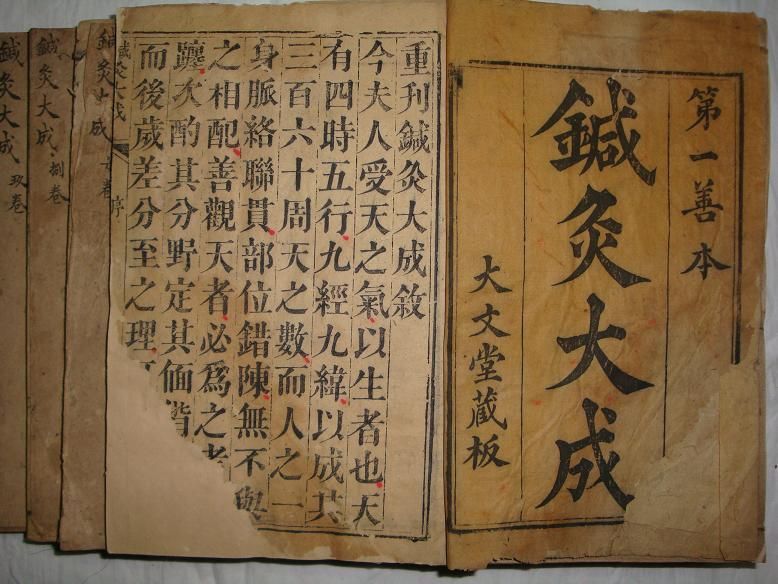 第一善本
鍼灸大成
大文堂藏板
重刊鍼灸大成敘
今夫人受天之氣以生者也天
有四時五行九經九緯以成其
三百六十周天之數而人之一
身脈絡聯貫部位錯陳無不與
之相配善觀天者必為之考
躔次酌其分野定其偭
而後歲差分至之理
鍼灸大成 序
鍼灸大成
鍼灸大成 捌卷
鍼灸大成 玖卷